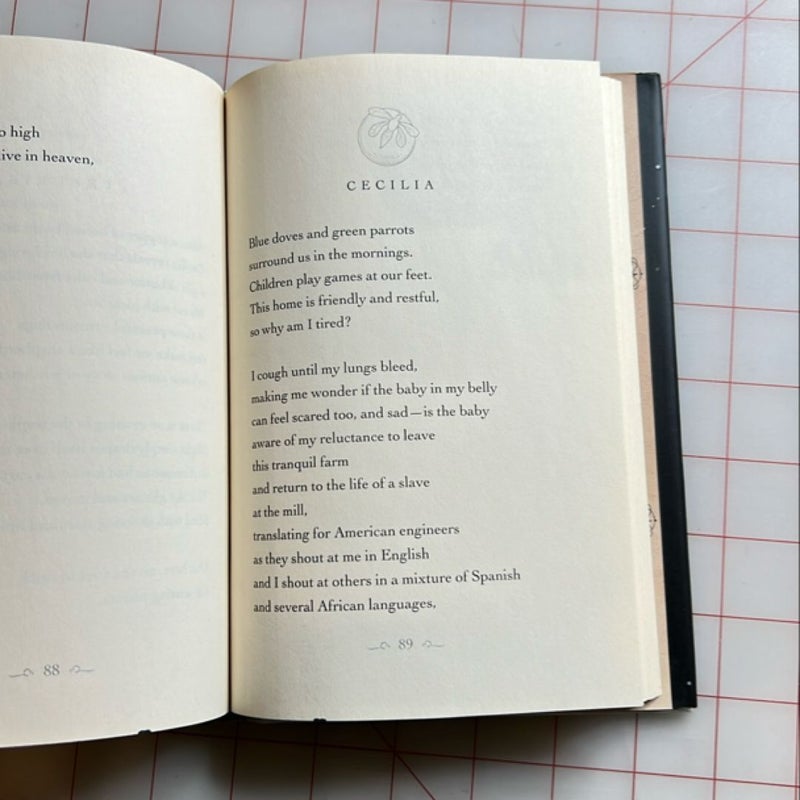 high
ive in heaven,
88
CECILIA
Blue doves and green parrots
surround us in the mornings.
Children play games at our feet.
This home is friendly and restful,
so why am I tired?
I cough until my lungs bleed,
making me wonder if the baby in my belly
can feel scared too, and sad—is the baby
aware of my reluctance to leave
this tranquil farm
and return to the life of a slave
at the mill,
translating for American engineers
as they shout at me in English
and I shout at others in a mixture of Spanish
and several African languages,
89